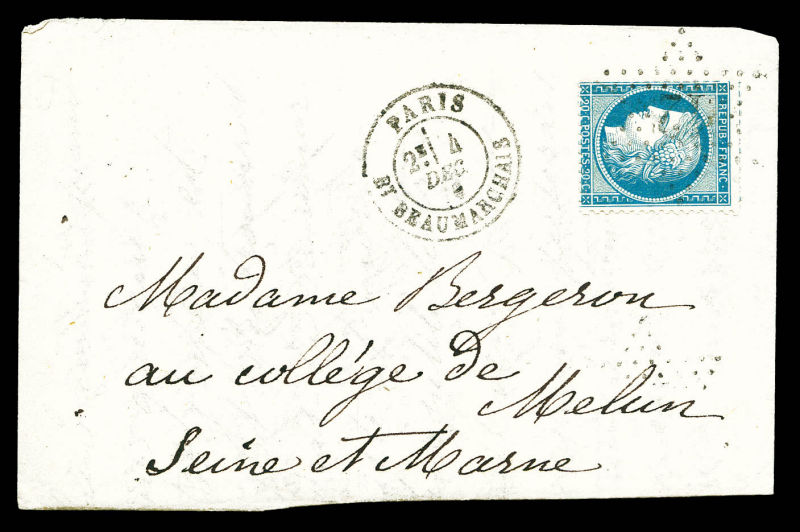 PARIS
2E 4
DEC
BT BEAUMARCHAIS
REPUB·FRANC·
20·C·POSTES·20·C
Madame Bergeron
au collége de
Melun
Seine et Marne